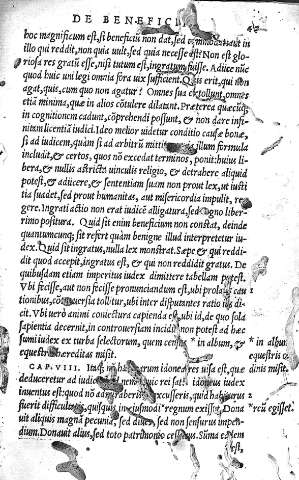 DE BENEFICI
hoc magnificum est, si beneficiũ non dat, sed commodat: aut in
illo qui reddit, non quia uult, sed quia necesse est? Non est glo
riosa res gratũ esse, nisi tutum est, ingratum fuisse. Adiice nũc
quod huic uni legi omnia fora uix sufficiant. Quis erit, qui non
agat, quis, cum quo non agatur? Omnes sua extollunt, omnes
etiã minima, quæ in alios cõtulere dilatant. Præterea quæcũq;
in cognitionem cadunt, cõprehendi possunt, & non dare infi-
nitam licentiã iudici. Ideo melior uidetur conditio causæ bonæ,
si ad iudicem, quàm si ad arbitrũ mittitur: quia illum formula
includit, & certos, quos nõ excedat terminos, ponit: huius li
bera, & nullis astricta uinculis religio, & detrahere aliquid
potest, & adiicere, & sententiam suam non prout lex, ut iusti
tia suadet, sed prout humanitas, aut misericordia impulit, re
gere. Ingrati actio non erat iudicē alligatura, sed regno liber-
rimo positura. Quid sit enim beneficium non constat, deinde
quantumcunq; sit: refert quàm benigne illud interpretetur iu-
dex. Quid sit ingratus, nulla lex monstrat. Sæpe & qui reddi-
dit quod accepit, ingratus est, & qui non reddidit gratus. De
quibusdam etiam imperitus iudex dimittere tabellam potest.
Vbi fecisse, aut non fecisse pronunciandum est, ubi prolatis cau
tionibus, controuersia tollitur, ubi inter disputantes ratio ius di-
cit. Vbi uerò animi coniectura capienda est, ubi id, de quo sola
sapientia decernit, in controuersiam incidit: non potest ad hæc
sumi iudex ex turba selectorum, quem census * in album, & * in album &
equestris hæreditas misit. equestris o
dinis misit.
CAP. VIII. Itaq; non hæc parum idonea res uisa est, quæ
deduceretur ad iudicem, sed nemo huic rei satis idoneus iudex
inuentus est: quod nõ admiraberis, si excusseris, quid habiturus
fuerit difficultatis, quisquis in eiusmodi * regnum exisset. Dona * reũ egisset.
uit aliquis magnã pecuniã, sed diues, sed non sensurus impen-
dium. Donauit alius, sed toto patrimonio cessurus. Sũma eadem
est,